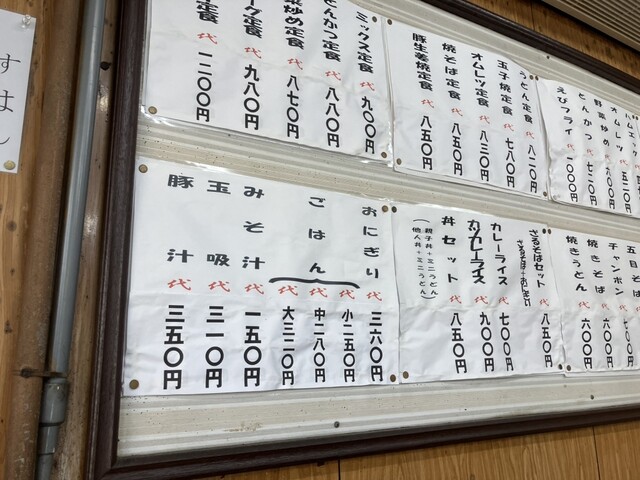 ミックス定食 代 九〇〇円
とんかつ定食 代 八八〇円
炒め定食 代 八七〇円
グ定食 代 九八〇円
定食 代 一二〇〇円
うどん定食 代 八二〇円
玉子焼定食 代 七八〇円
オムレツ定食 代 八三〇円
焼そば定食 代 八五〇円
豚生姜焼定食 代 八五〇円
オムレツ 代 五二〇円
野菜炒め 代 六〇〇円
とんかつ 代 七二〇円
えびフライ 代 一〇〇〇円
おにぎり 代 三六〇円
ごはん 代 小二五〇円
代 中二八〇円
代 大三二〇円
みそ汁 代 一五〇円
玉吸 代 三一〇円
豚汁 代 三五〇円
ざるそばセット 代 八五〇円
ざるそば+おにぎり
カレーライス 代 七〇〇円
カツカレーライス 代 九〇〇円
丼セット 代 八五〇円
(親子丼+ミニうどん)
(他人丼+ミニうどん)
五目そば
チャンポン 代 七〇〇円
焼きそば 代 六〇〇円
焼きうどん 代 六〇〇円
すはし